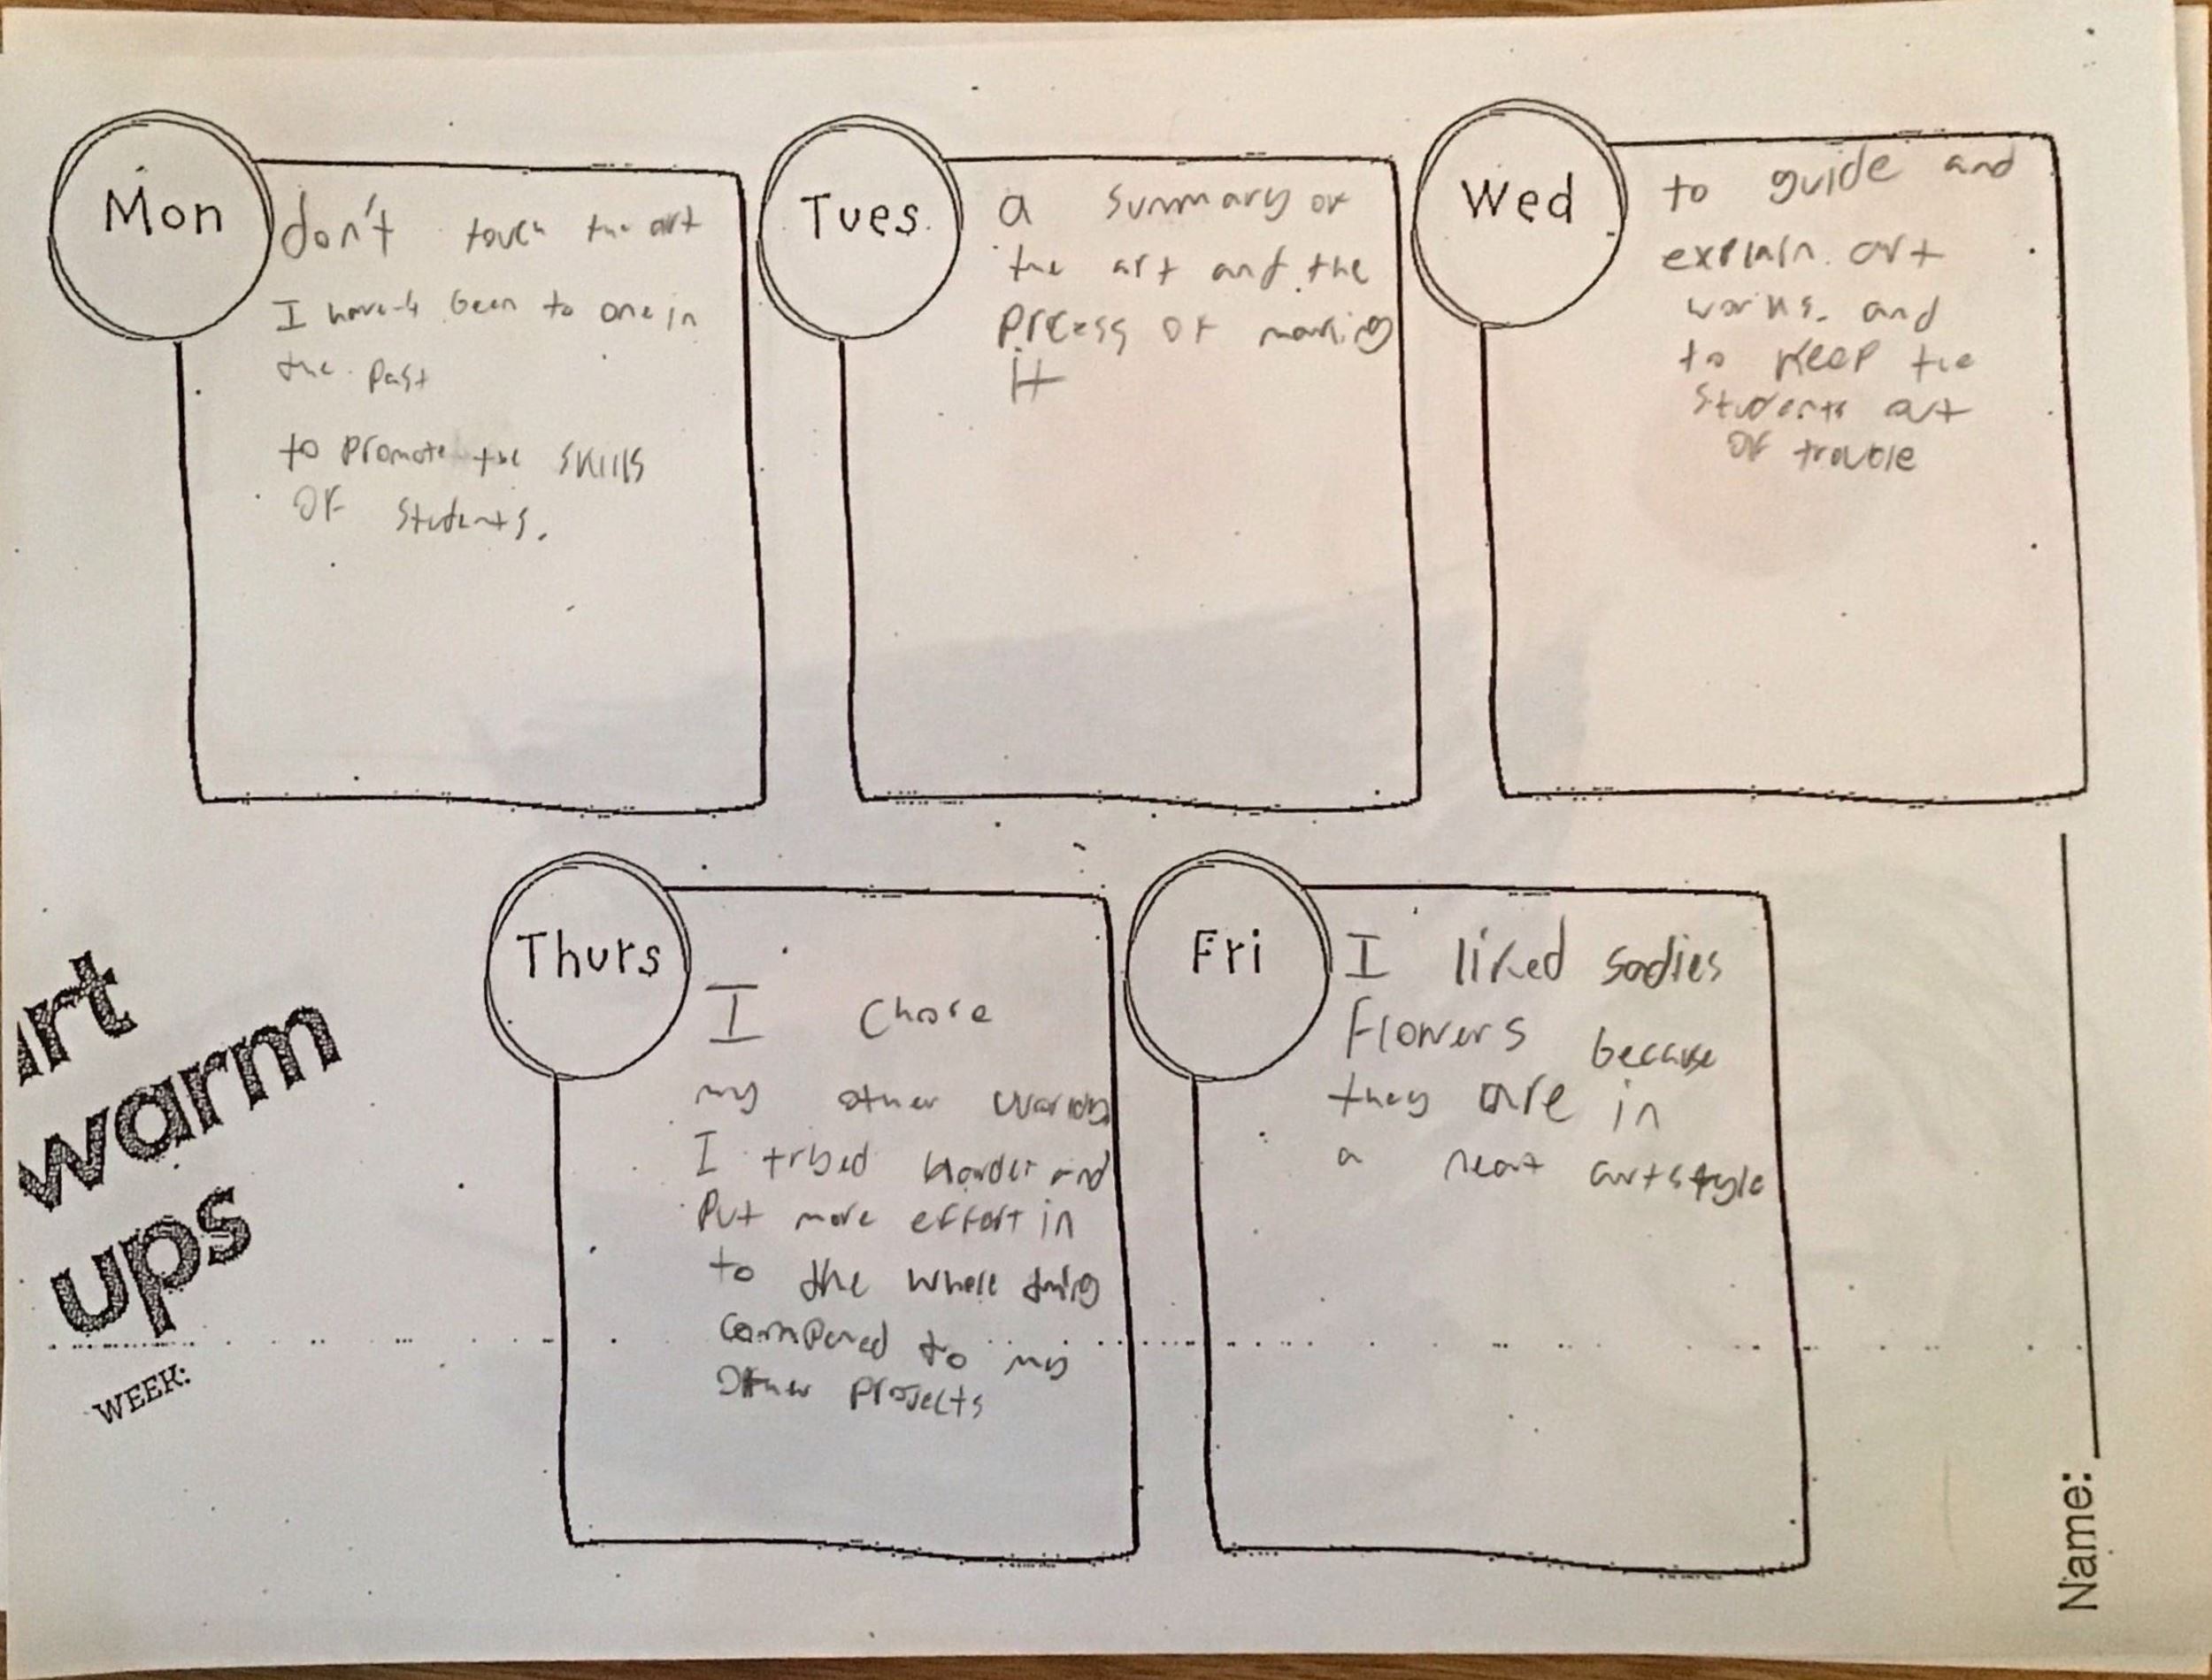 Mon
don't touch the art
I haven't been to one in
the past
to promote the skills
of students.
Tues
a summary of
the art and the
process of making
it
Wed
to guide and
explain art
works. and
to keep the
students out
of trouble
Thurs
I chose
my other
I tryed harder and
Put more effort in
to the whole thing
compared to my
other projects
Fri
I liked sadies
flowers because
they are in
a neat artstyle
art
warm
ups
WEEK:
Name: